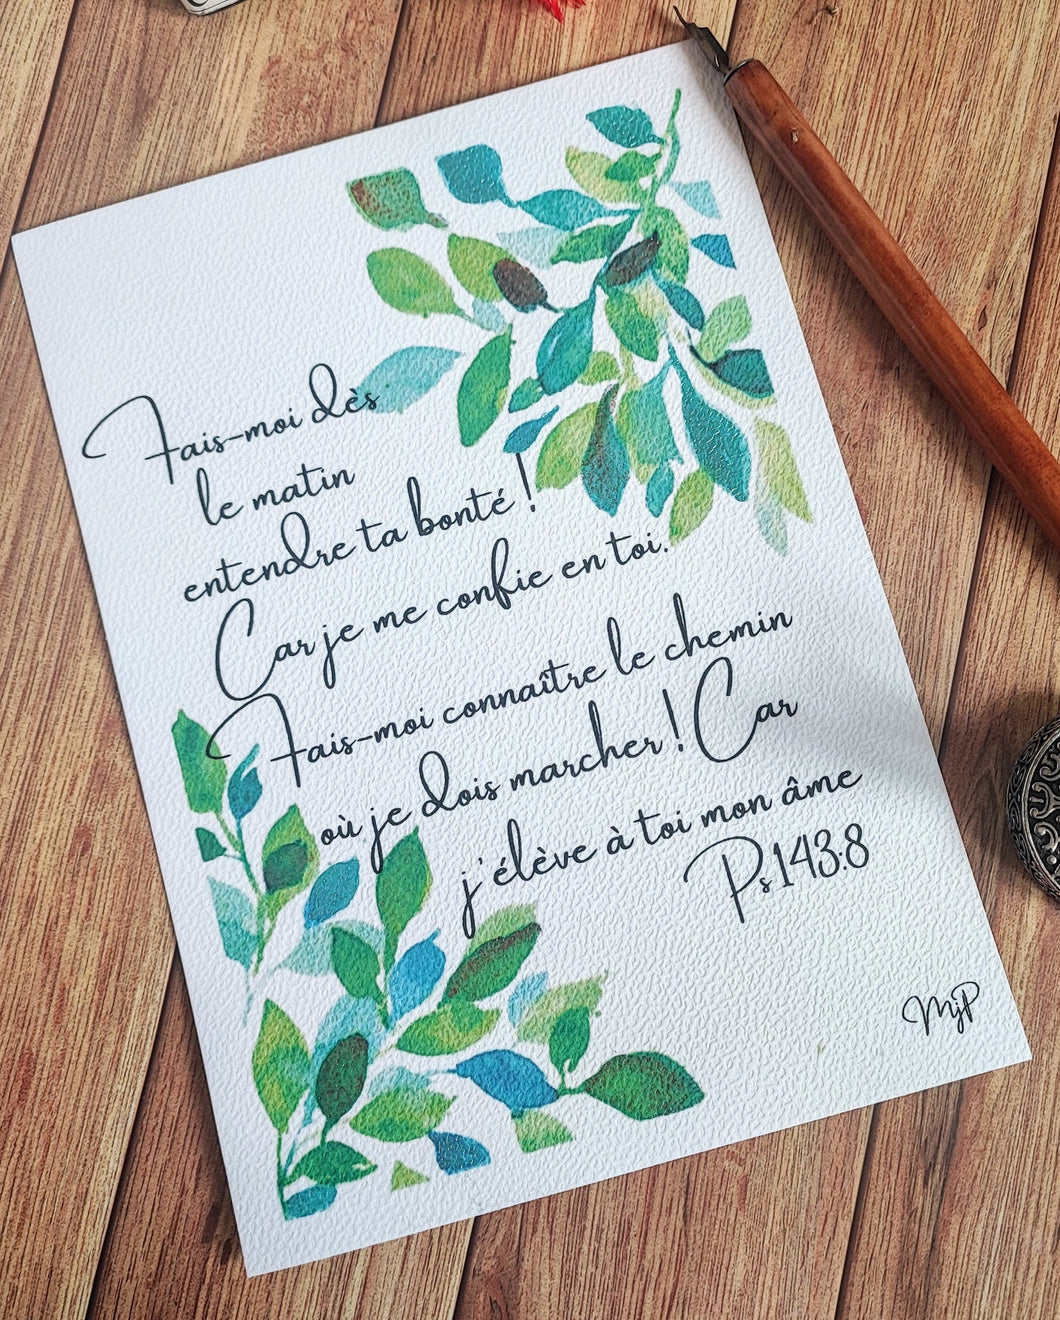 Fais-moi dès
le matin
entendre ta bonté !
Car je me confie en toi.
Fais-moi connaître le chemin
où je dois marcher ! Car
j'élève à toi mon âme
Ps 143:8
MjP